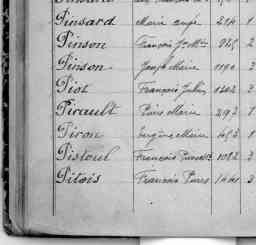 Pinsard Marie Ange 214 1
Pinson François Je Mie 945 2
Pinson Joseph Marie 1190 3
Piot François Julien 1202 3
Pirault Pierre Marie 297 1
Piron Eugène Marie 1
Pistoul François 1082 3
Pitois François Pierre 1441 3